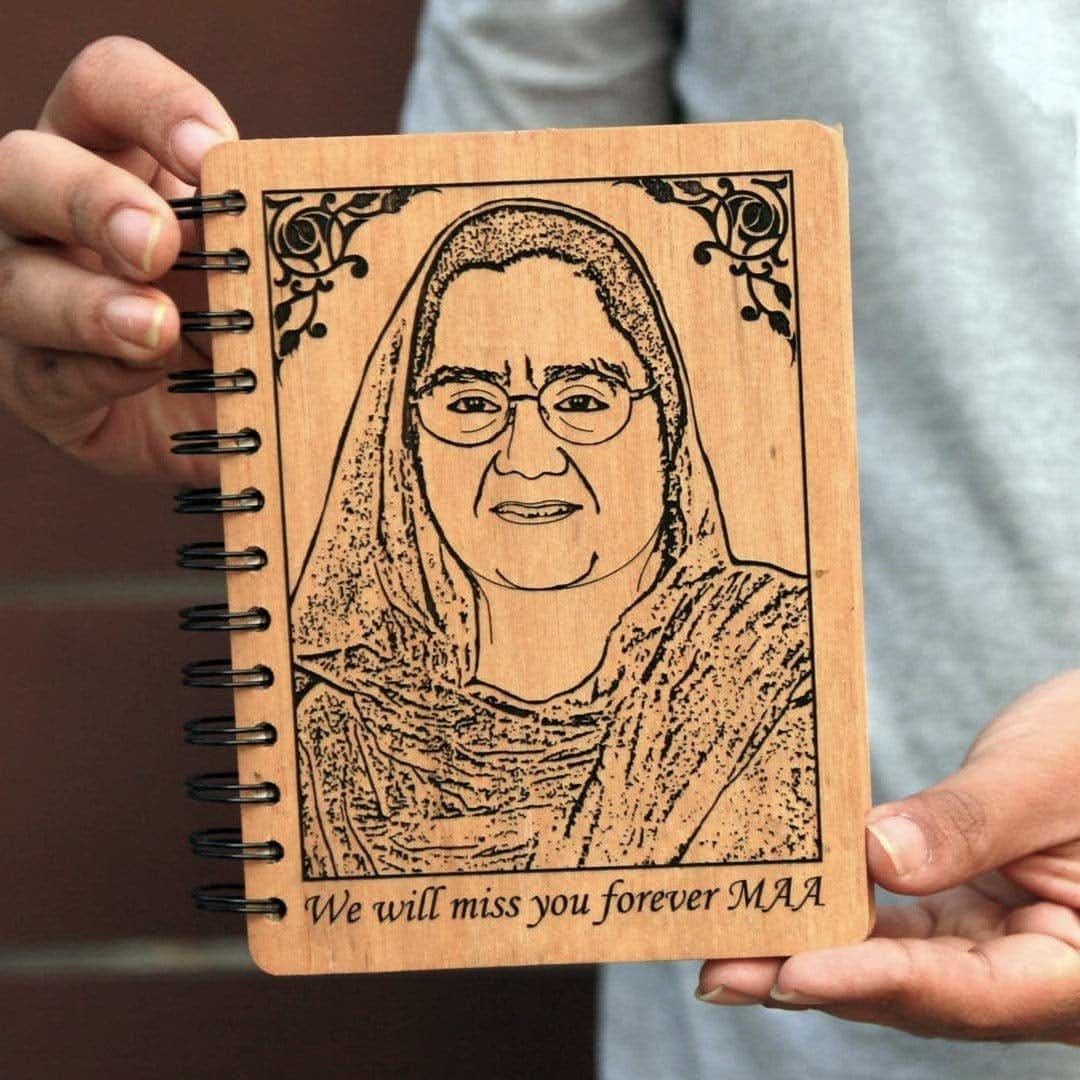 We will miss you forever MAA